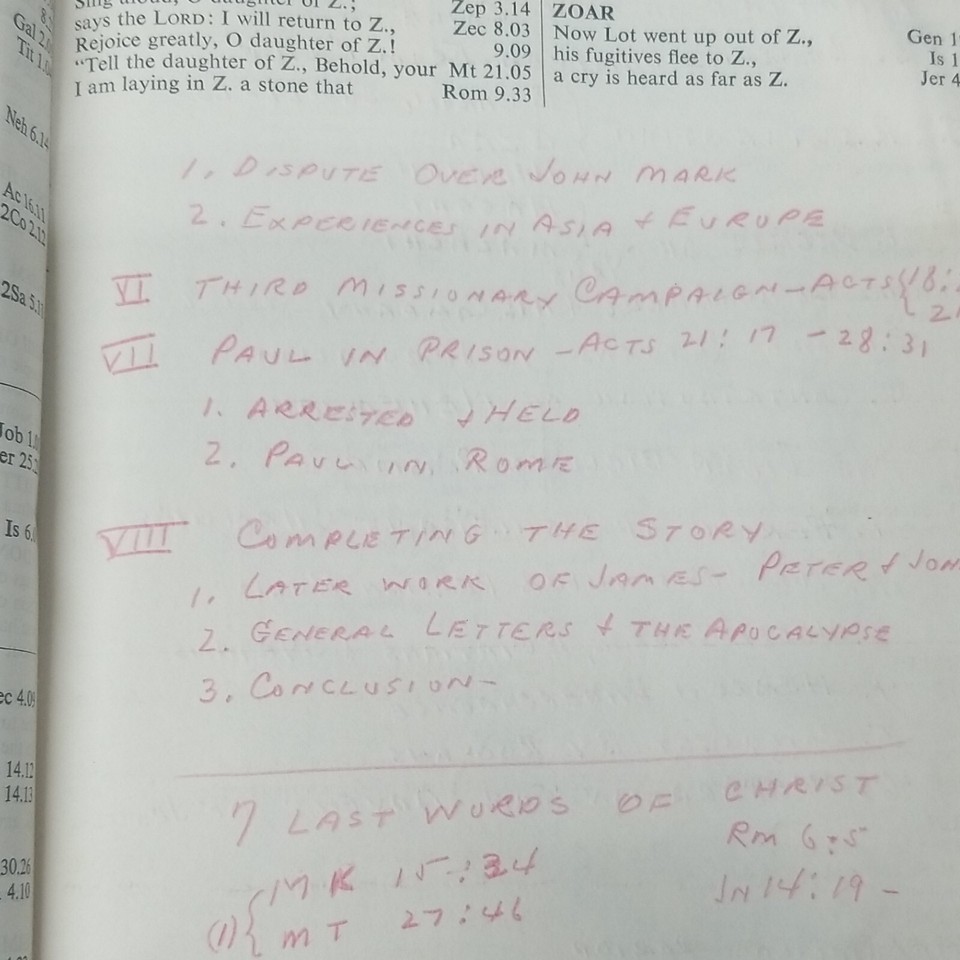 says the LORD: I will return to Z.,
Zep 3.14
Zec 8.03
Rejoice greatly, O daughter of Z.!
9.09
"Tell the daughter of Z., Behold, your
Mt 21.05
I am laying in Z. a stone that
Rom 9.33
ZOAR
Now Lot went up out of Z.,
Gen
his fugitives flee to Z.,
Is
a cry is heard as far as Z.
Jer
Neh 6.14
Ac 16.11
2Co 2.12
2Sa
Is 6.
14.12
14.13
30.26
4.10
1. DISPUTE OVER JOHN MARK
2. EXPERIENCES IN ASIA & EUROPE
VI THIRD MISSIONARY CAMPAIGN - ACTS { 18:
VII PAUL IN PRISON - ACTS 21:17 - 28:31
1. ARRESTED & HELD
2. PAUL IN ROME
VIII COMPLETING THE STORY
1. LATER WORK OF JAMES - PETER &
2. GENERAL LETTERS & THE APOCALYPSE
3. CONCLUSION -
7 LAST WORDS OF CHRIST
Rm 6:5
(1) { MK 15:34
JN 14:19 -
MT 27:46